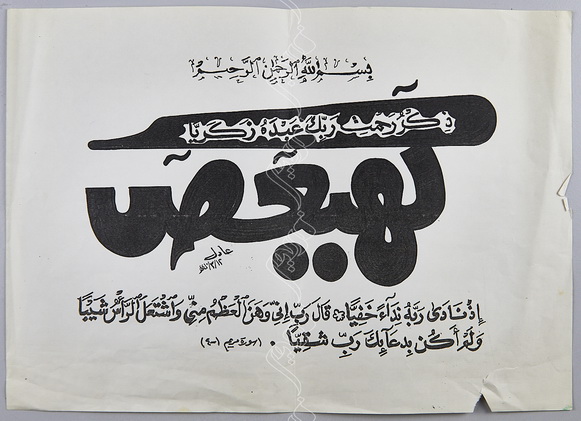 بِسْمِ ٱللَّهِ ٱلرَّحْمَٰنِ ٱلرَّحِيمِ
ذِكْرُ رَحْمَتِ رَبِّكَ عَبْدَهُ زَكَرِيَّا
كهيعص
عادل
إِذْ نَادَىٰ رَبَّهُ نِدَاءً خَفِيًّا قَالَ رَبِّ إِنِّي وَهَنَ ٱلْعَظْمُ مِنِّي وَٱشْتَعَلَ ٱلرَّأْسُ شَيْبًا
وَلَمْ أَكُن بِدُعَائِكَ رَبِّ شَقِيًّا • (سورة مريم ١-٤)